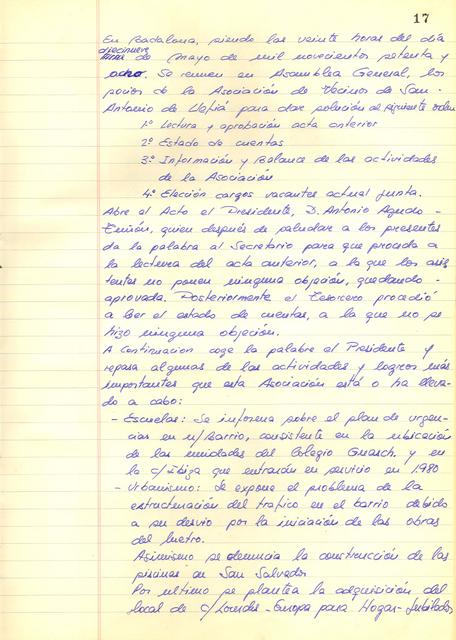 17
En Badalona, siendo las veinte horas del dia
diecinueve
de Mayo de mil novecientos setenta y
ocho. Se reunen en Asamblea General, los
socios de la Asociación de Vecinos de San-
Antonio de Llefiá para dar solución al siguiente orden
1º Lectura y aprobación acta anterior
2º Estado de cuentas
3º Información y Balance de las actividades
de la Asociación
4º Elección cargos vacantes actual junta.
Abre el Acto el Presidente, D. Antonio Agudo-
quien después de saludar a los presentes
da la palabra al Secretario para que proceda a
la lectura del acta anterior, a la que los asis
tentes no ponen ninguna objeción, quedando-
aprovada. Posteriormente el Tesorero procedió
a leer el estado de cuentas, a la que no se
hizo ninguna objeción.
A continuacion coge la palabra el Presidente y
repasa algunas de las actividades y logros más
importantes que esta Asociación está o ha lleva-
do a cabo:
- Escuelas: Se informa sobre el plan de urgen-
cias en n/Barrio, consistente en la ubicación
de las unidades del Colegio Guasch. y en
la c/Ibiza que entrarán en servicio en 1980
- Urbanismo: Se expone el problema de la
estructuración del trafico en el barrio debido
a su desvio por la iniciación de las obras
del Metro.
Asimismo se denuncia la construcción de las
piscinas en San Salvador
Por ultimo se plantea la adquisición del
local de c/Lourdes-Europa para Hogar-Jubilados